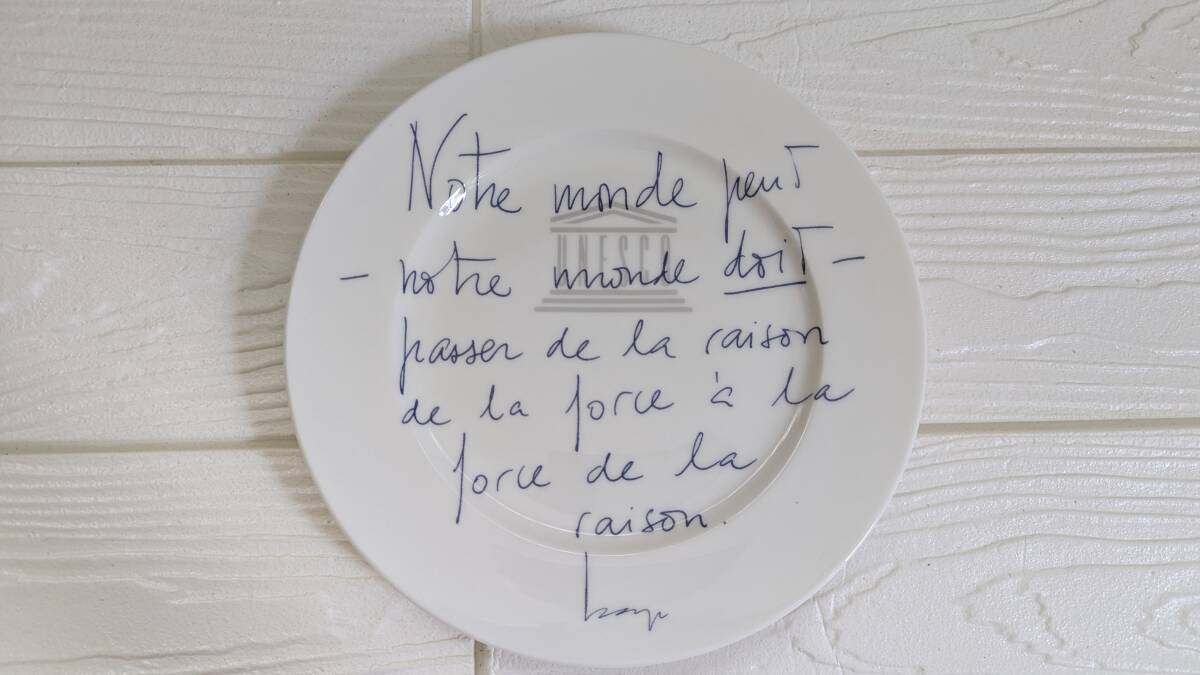 Notre monde peut
UNESCO
– notre monde doit –
passer de la raison
de la force à la
force de la
raison.